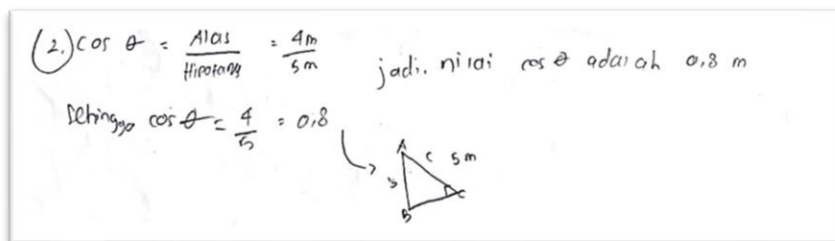 (2.) cos θ = Alas/Hipotenus = 4m/5m
jadi, nilai cos θ adalah 0,8 m
Sehingga cos θ = 4/5 = 0,8
A
c 5m
C
B